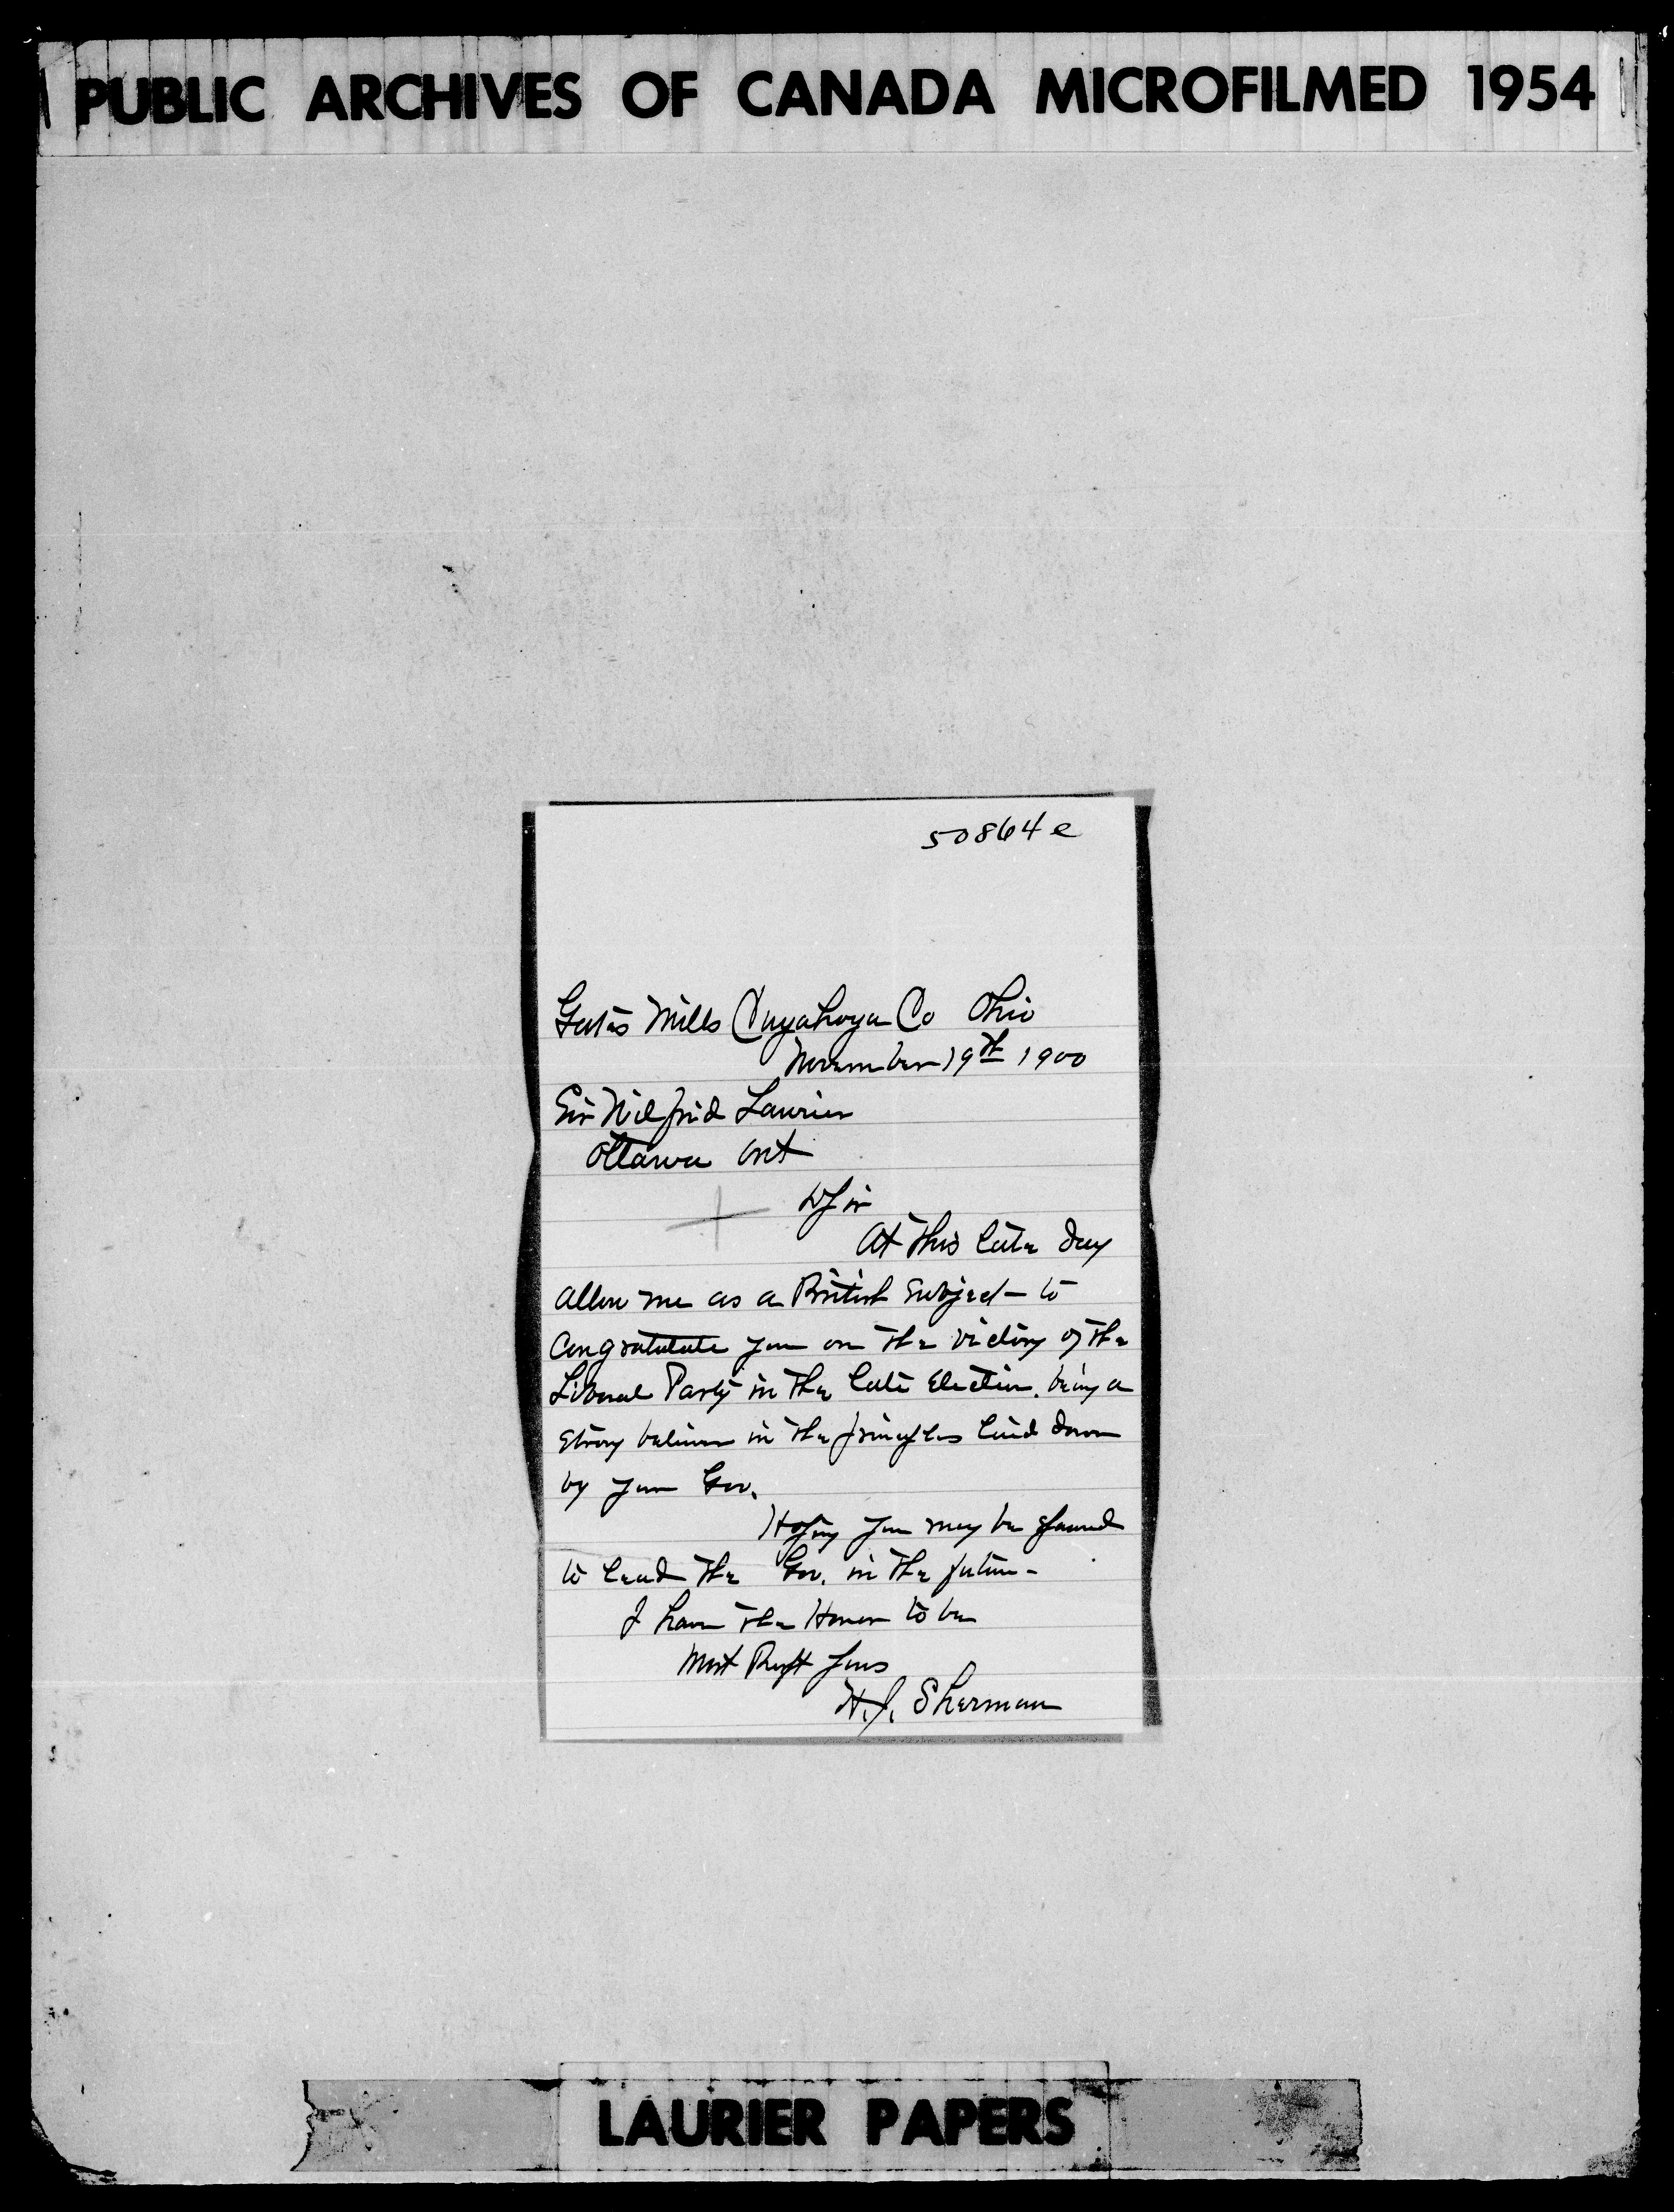 PUBLIC ARCHIVES OF CANADA MICROFILMED 1954
50864 e
Gates Mills Cuyahoga Co Ohio
November 19th 1900
Sir Wilfrid Laurier
Ottawa Ont
D Sir
At this late day
allow me as a British subject to
congratulate you on the victory of the
Liberal Party in the late Election. being a
strong believer in the principles laid down
by your Gov.
Hoping you may be spared
to lead the Gov. in the future-
I have the Honor to be
Most Respt Yours
H.J. Sherman
LAURIER PAPERS